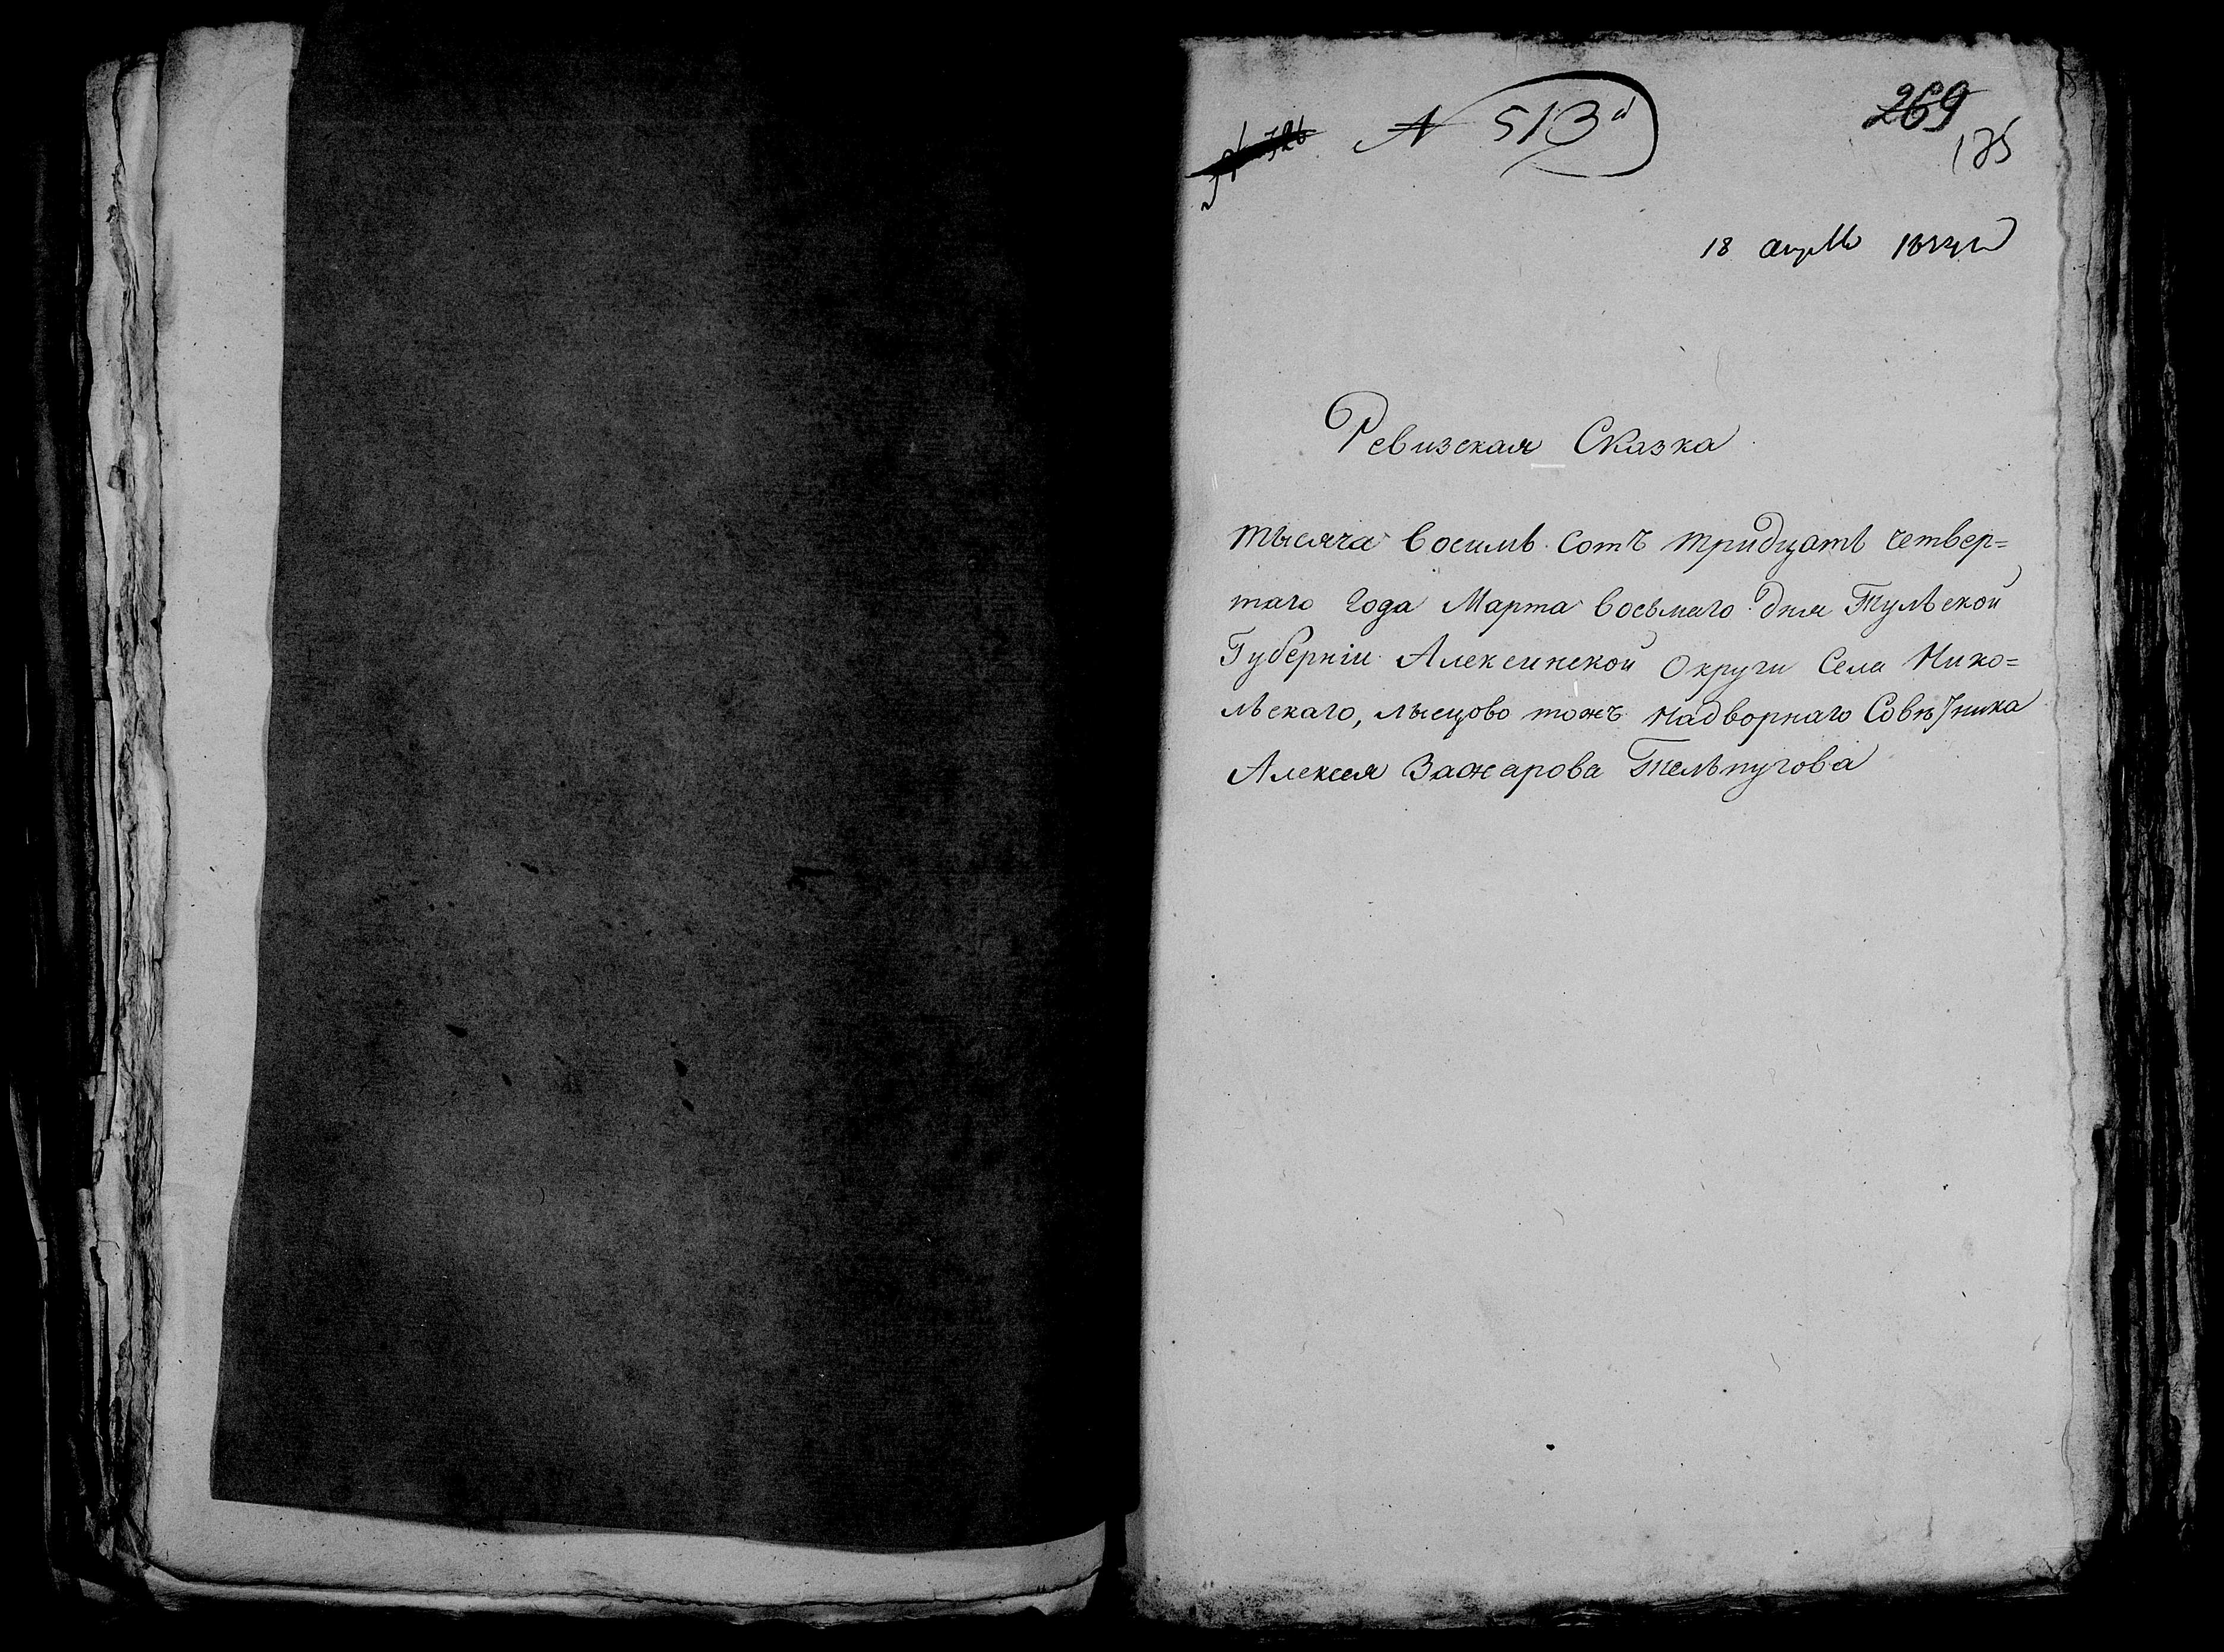 № 513й
269
175
18 апрѣля 1834
Ревизская Сказка
тысяча восимь сотъ тридцать четвер=
таго года Марта восьмаго дня Тульской
Губерніи Алексинской округи Села Нико=
льскаго, лысцово тожъ Надворнаго Совѣтника
Алексея Захарова Тельпугова